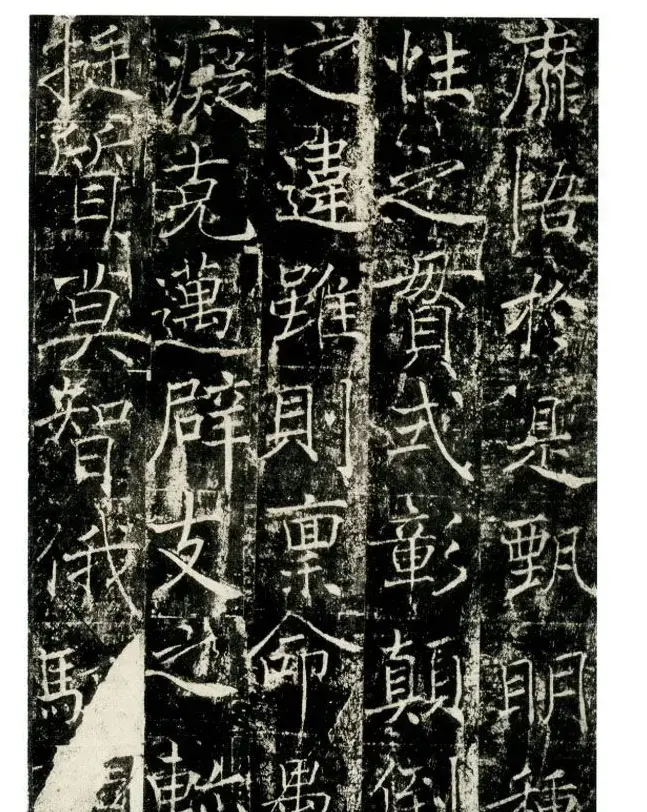 靡悟於是甄明種
性之實式彰顛倒
之違雖則稟命愚
癡克邁辟支之
挺質莫智俄